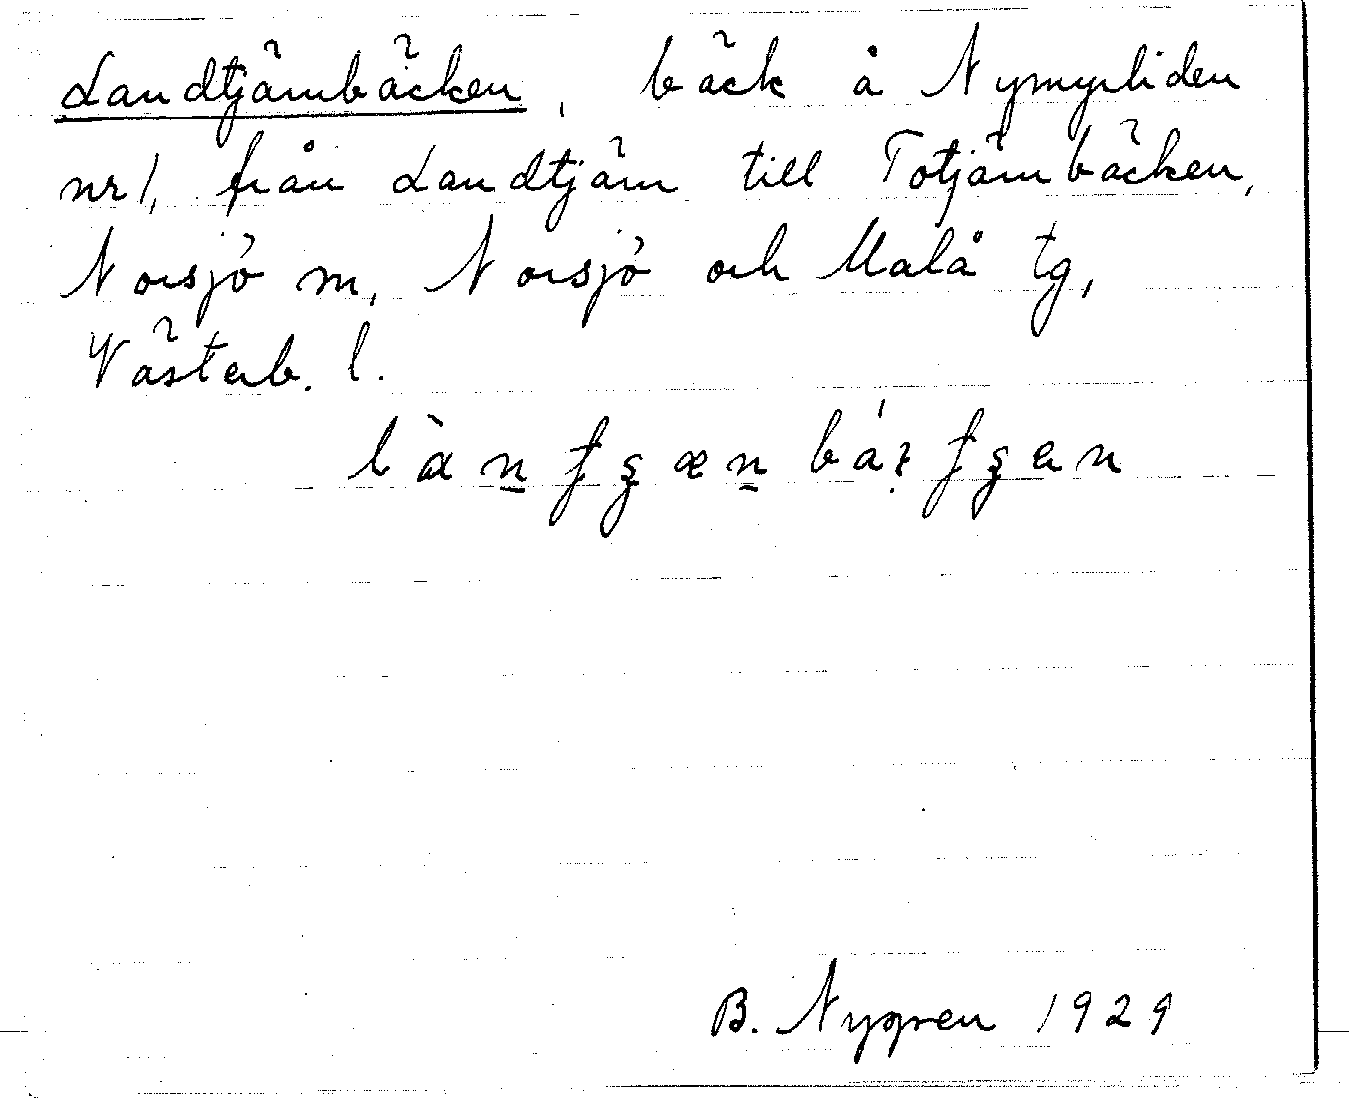 Landtjärnbäcken, bäck å Nymyrliden
nr 1, från Landtjärn till Totjärnbäcken,
Norsjö m, Norsjö och Malå tg,
Västerb. l.
B. Nygren 1929